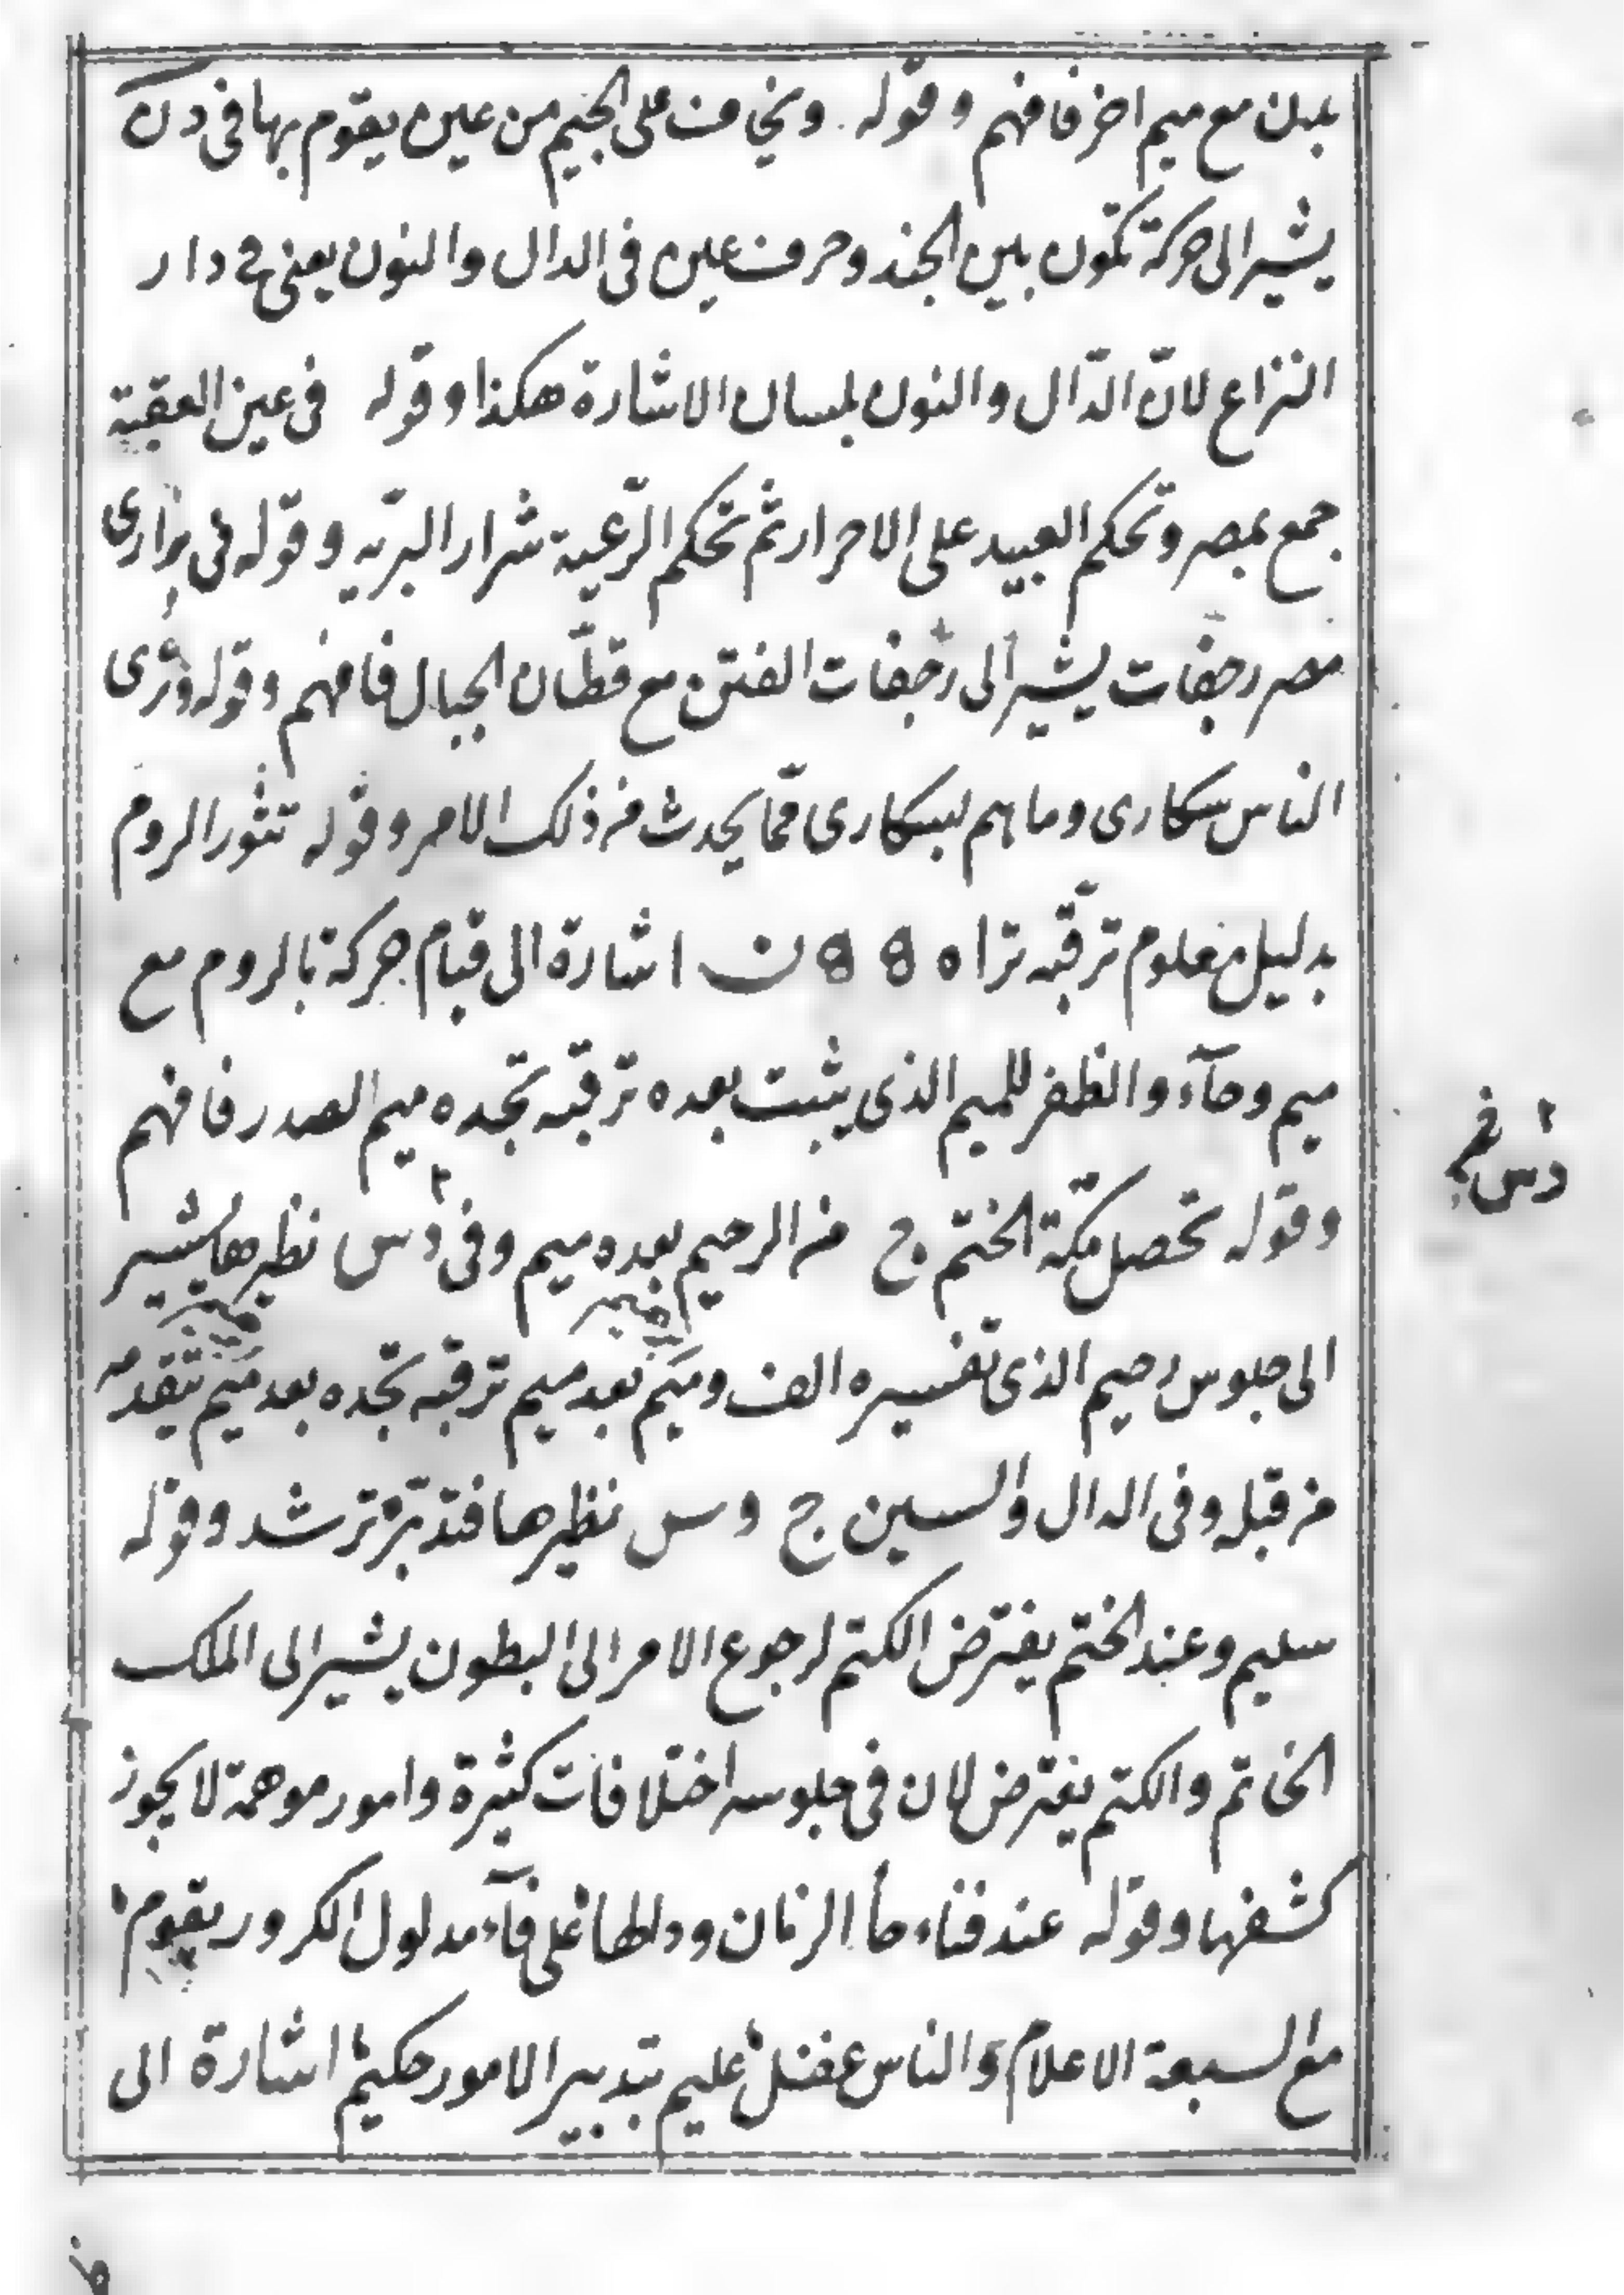 بدن مع ميم اخر فافهم وقوله ويخاف على الجيم من عين يقوم بها فى دن
يشير الى حركة تكون بين الجند وحرف عين فى الدال والنون يعنى فى دار
النزاع لانّ الدّال والنون بلسان الاشارة هكذا وقوله فى عين العقبة
جمع بمصر وتحكم العبيد على الاحرار ثم تحكم الرّعية شرار البريّه وقوله فى برارى
مصر رجفات يشير الى رجفات الفتن مع قطّان الجبال فافهم وقوله وترى
الناس سكارى وما هم بسكارى ممّا يحدث من ذلك الامر وقوله تثور الروم
بدليل معلوم ترقّبه تراه 8 8 ن اشارة الى قيام حركة بالروم مع
ميم وحآء والظفر للميم الذى يثبت بعده ترقبه تجده ميم الصدر فافهم
وقوله تحصل مكّة الختم ج من الرحيم بعده ميم وفى د س نظيرها يشير
الى جلوس رحيم الذى تفسيره الف وميم بعد ميم ترقبه تجده بعد ميم تقدمه
من قبله وفى الدال والسين ج وس نظيرها فتدبّره ترشد وقوله
سليم وعند الختم يفترض الكتم لرجوع الامر الى البطون يشير الى الملك
الخاتم والكتم يفترض لان فى جلوسه اختلافات كثيرة وامور موهمة لا يجوز
كشفها وقوله عند فناء حا الزمان ودلطها على فآء مدلول الكرور يقوم
مع السبعة الاعلام والناس غفل عليم بتدبير الامور حكيم اشارة الى
د س فى